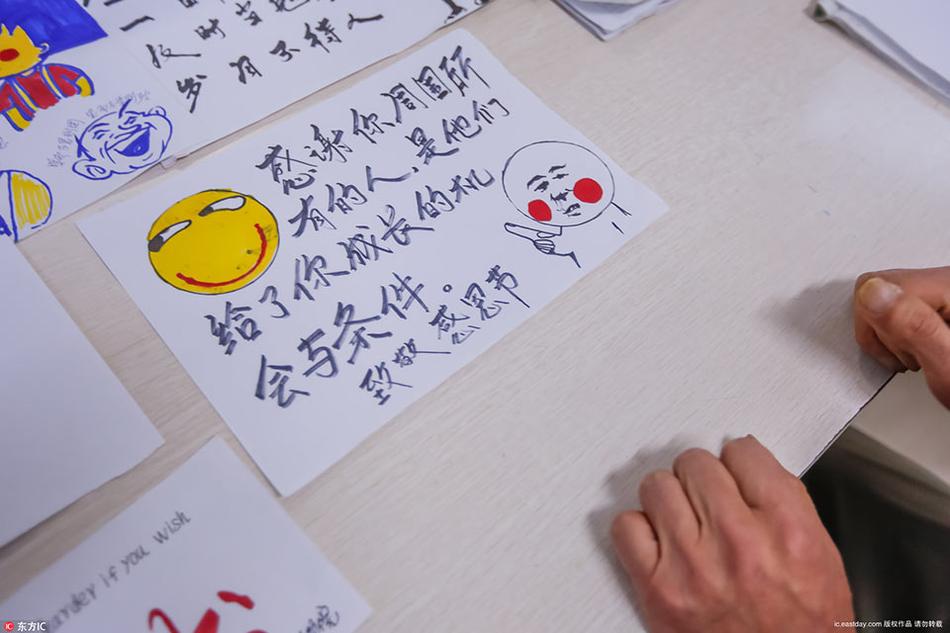 及时当
岁月不待人
感谢你周围所
有的人,是他们
给了你成长的机
会与条件。
致敬感恩节
arder if you wish
东方IC
ic.eastday.com 版权作品 请勿转载